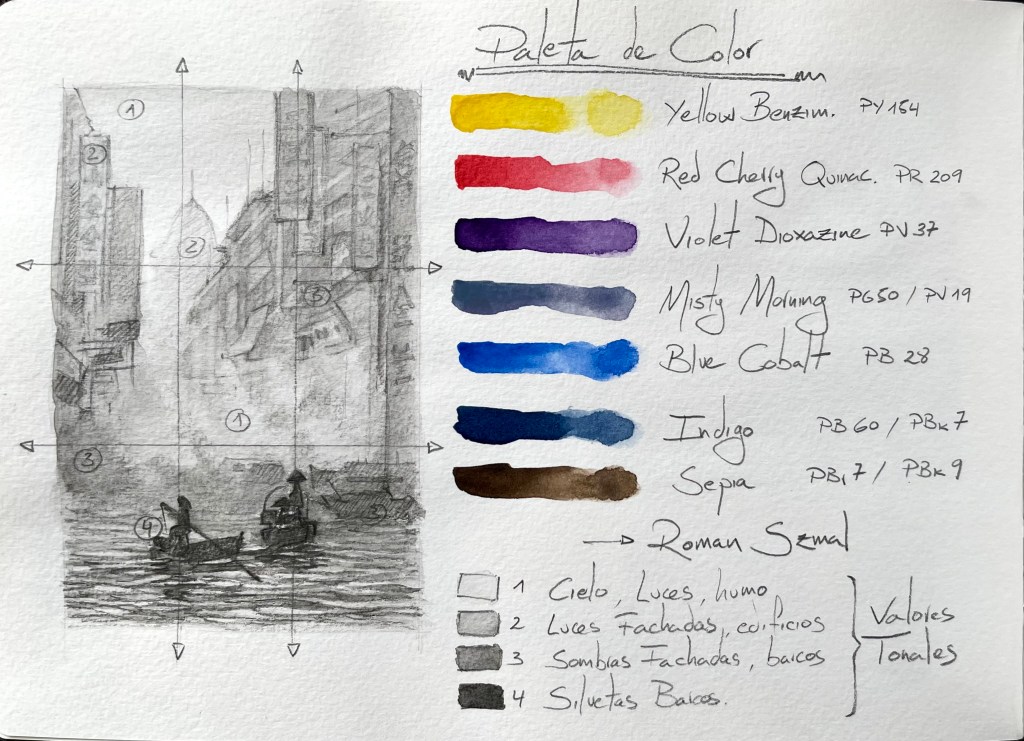 Paleta de Color
Yellow Benzim. PY 154
Red Cherry Quinac. PR 209
Violet Dioxazine PV 37
Misty Morning PG50 / PV19
Blue Cobalt PB 28
Indigo PB 60 / PBk 7
Sepia PBr 7 / PBk 9
→ Roman Szmal
1 Cielo, Luces, humo
2 Luces Fachadas, edificios
3 Sombras Fachadas, barcos
4 Siluetas Barcos.
Valores
Tonales
1
2
2
3
1
3
4
3